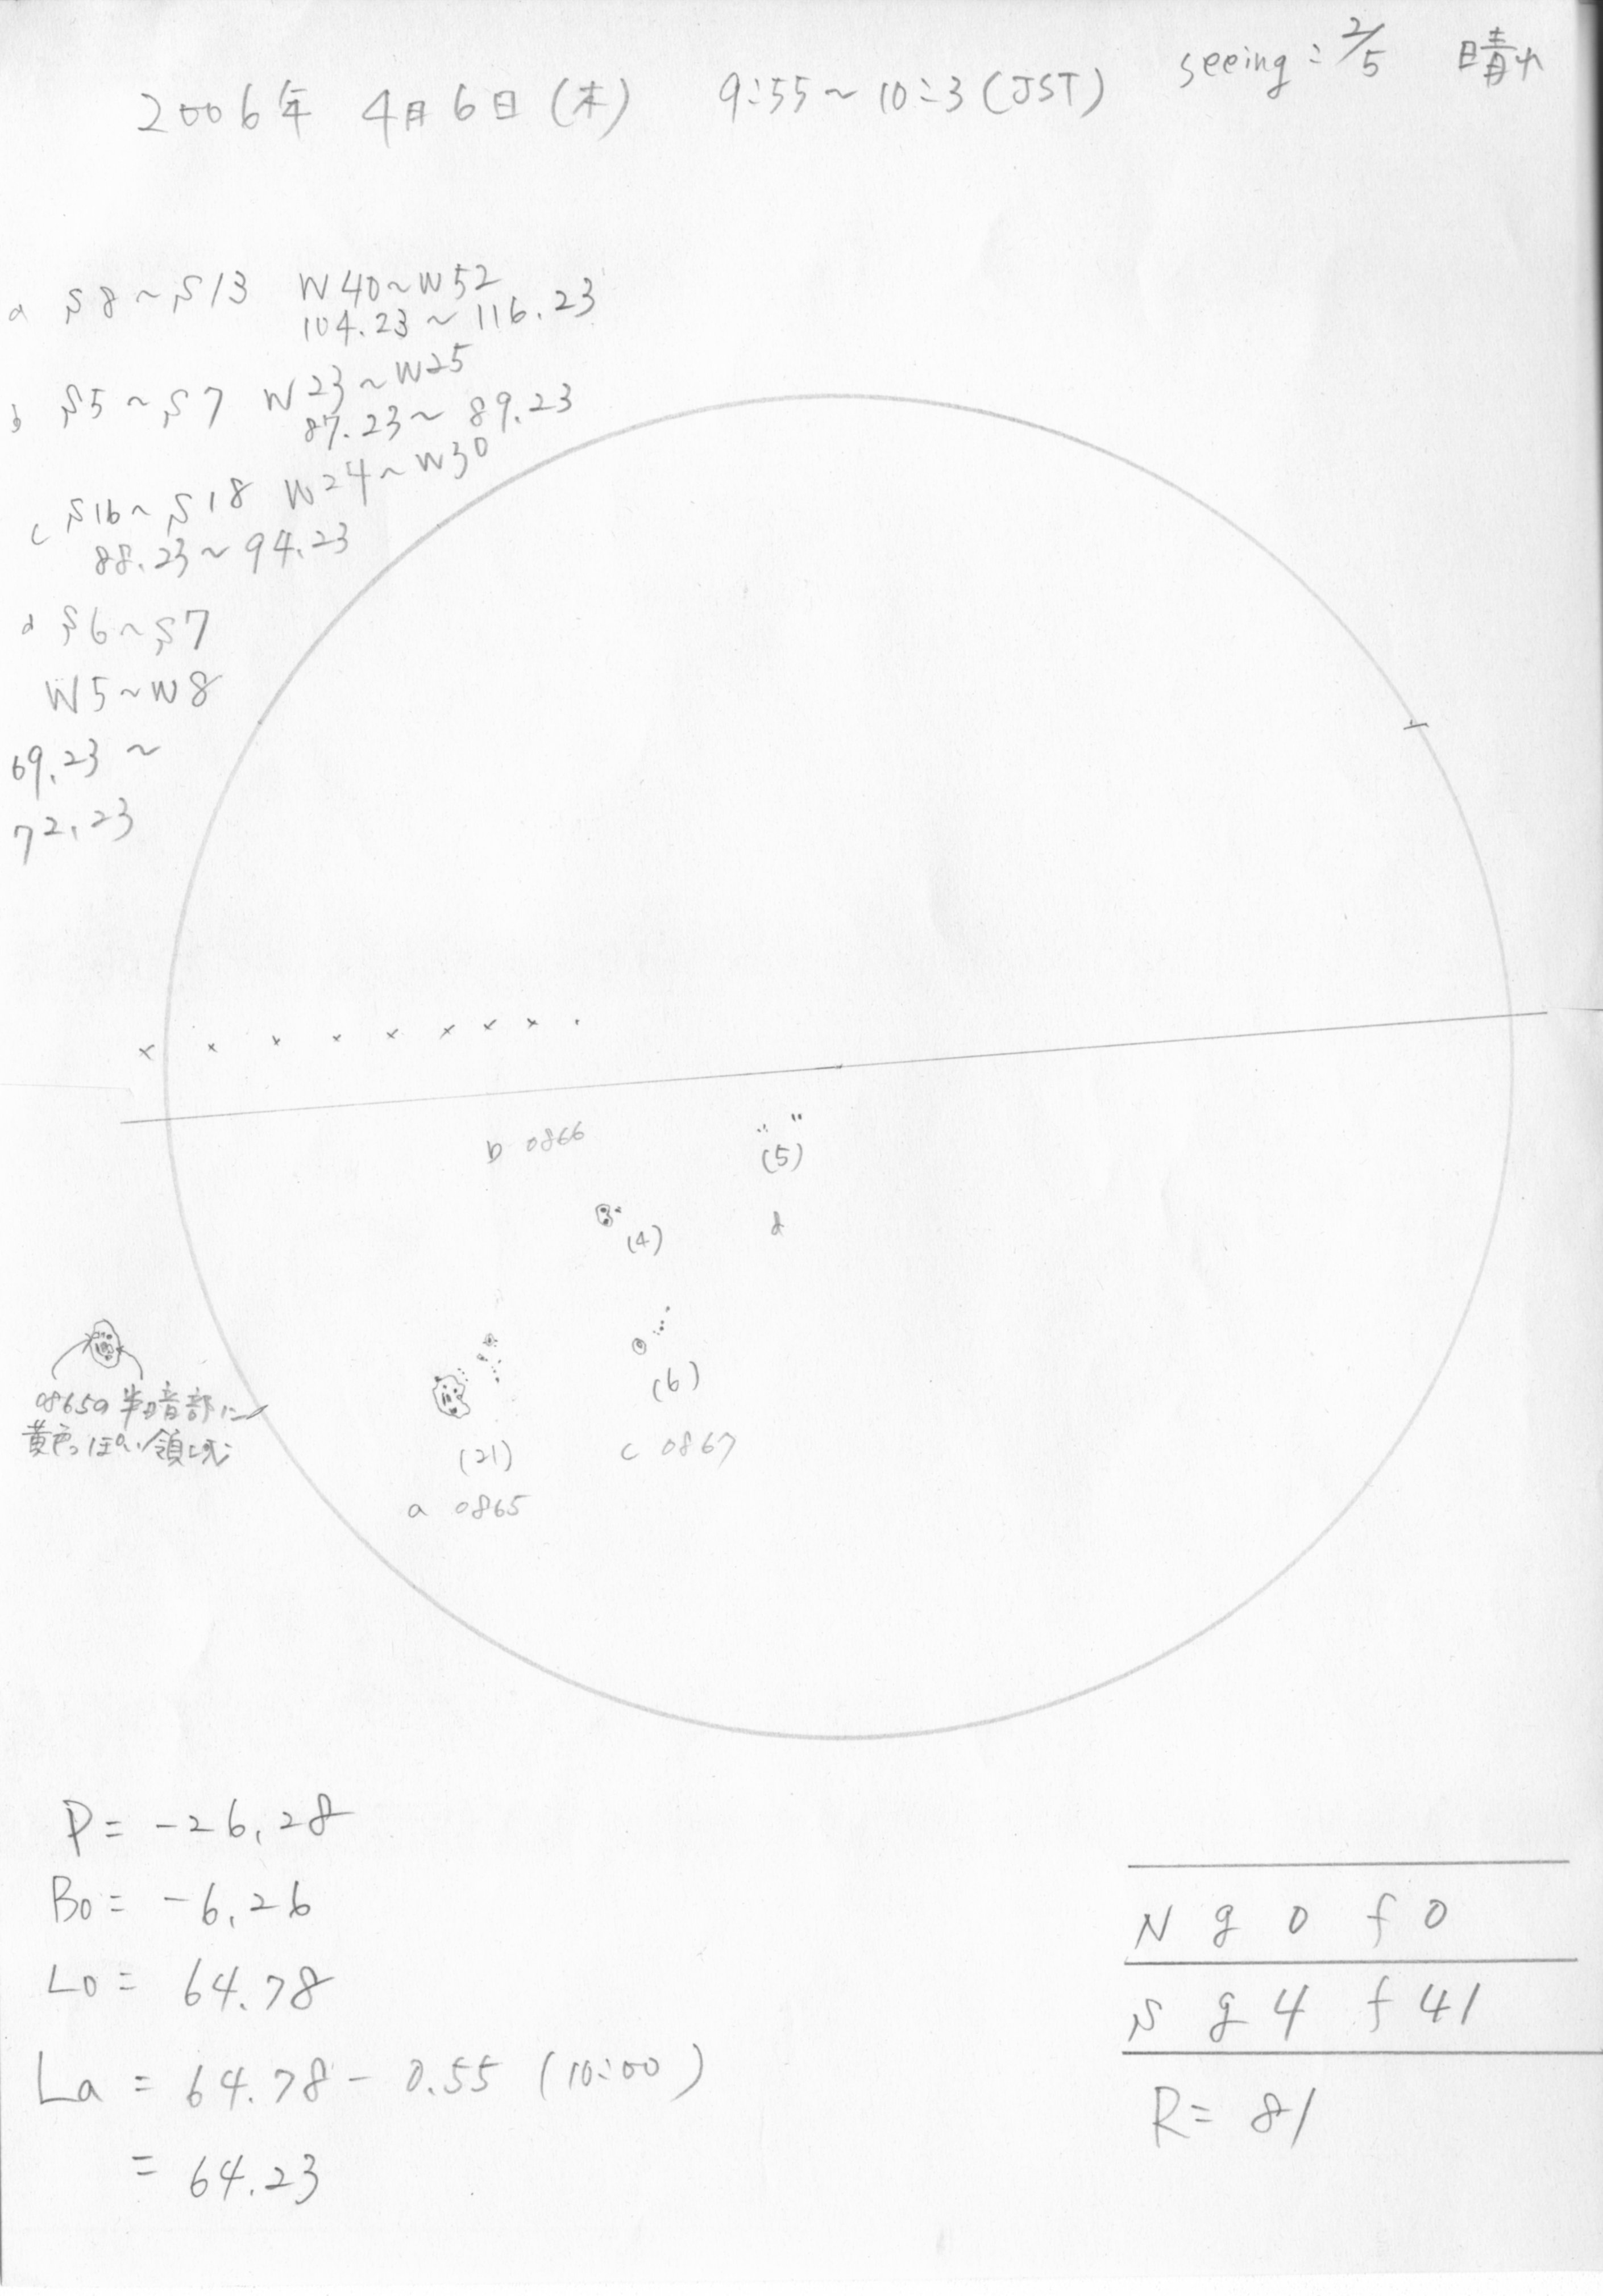 seeing: 2/5 晴れ
2006年 4月6日(木) 9:55~10:3(JST)
a S8~S13 W40~W52
104.23~116.23
b S5~S7 W23~W25
87.23~89.23
c S16~S18 W24~W30
88.23~94.23
d S6~S7
W5~W8
69.23~
72.23
b 0866
(5)
d
(4)
(6)
c 0867
(21)
a 0865
0865の半暗部に
黄色っぽい領域
P= -26.28
B0= -6.26
L0= 64.78
La = 64.78 - 0.55 (10:00)
= 64.23
N g 0 f 0
S g 4 f 41
R= 81